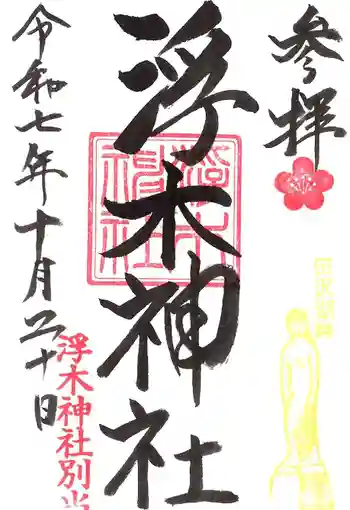 参拝
浮木神社
浮木神社
令和七年十月二十日
浮木神社別当